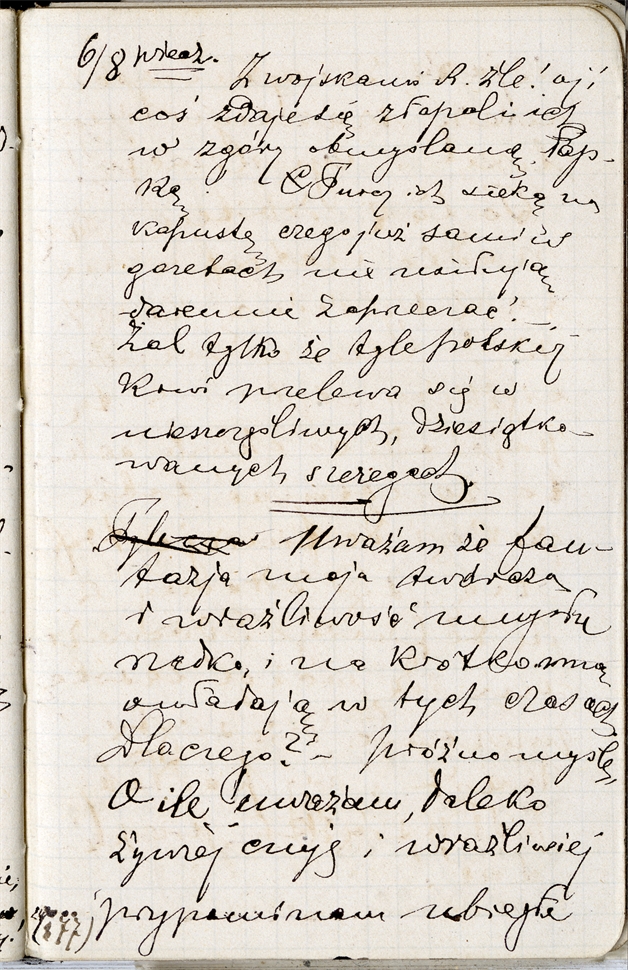 6/8 wiecz.
Z wojskami R. źle! oj!
coś zdaje się złapali ich
w zgóry obmyślaną łap-
kę. Turcy ich sieką na
kapustę czego już sami w
gazetach nie usiłują
daremnie zaprzeczać!
Żal tylko że tyle polskiéj
krwi przelewa się w
nieszczęśliwych, dziesiątko-
wanych szeregach.
Uważam że fan-
tazja moja twórcza
i wrażliwość umysłu
rzadko, i na krótko mną
owładają w tych czasach
Dlaczego? – próżno myślę,
O ile uważam, daleko
żywiéj czuję i wrażliwiej
przypominam ubiegłe
(1877)